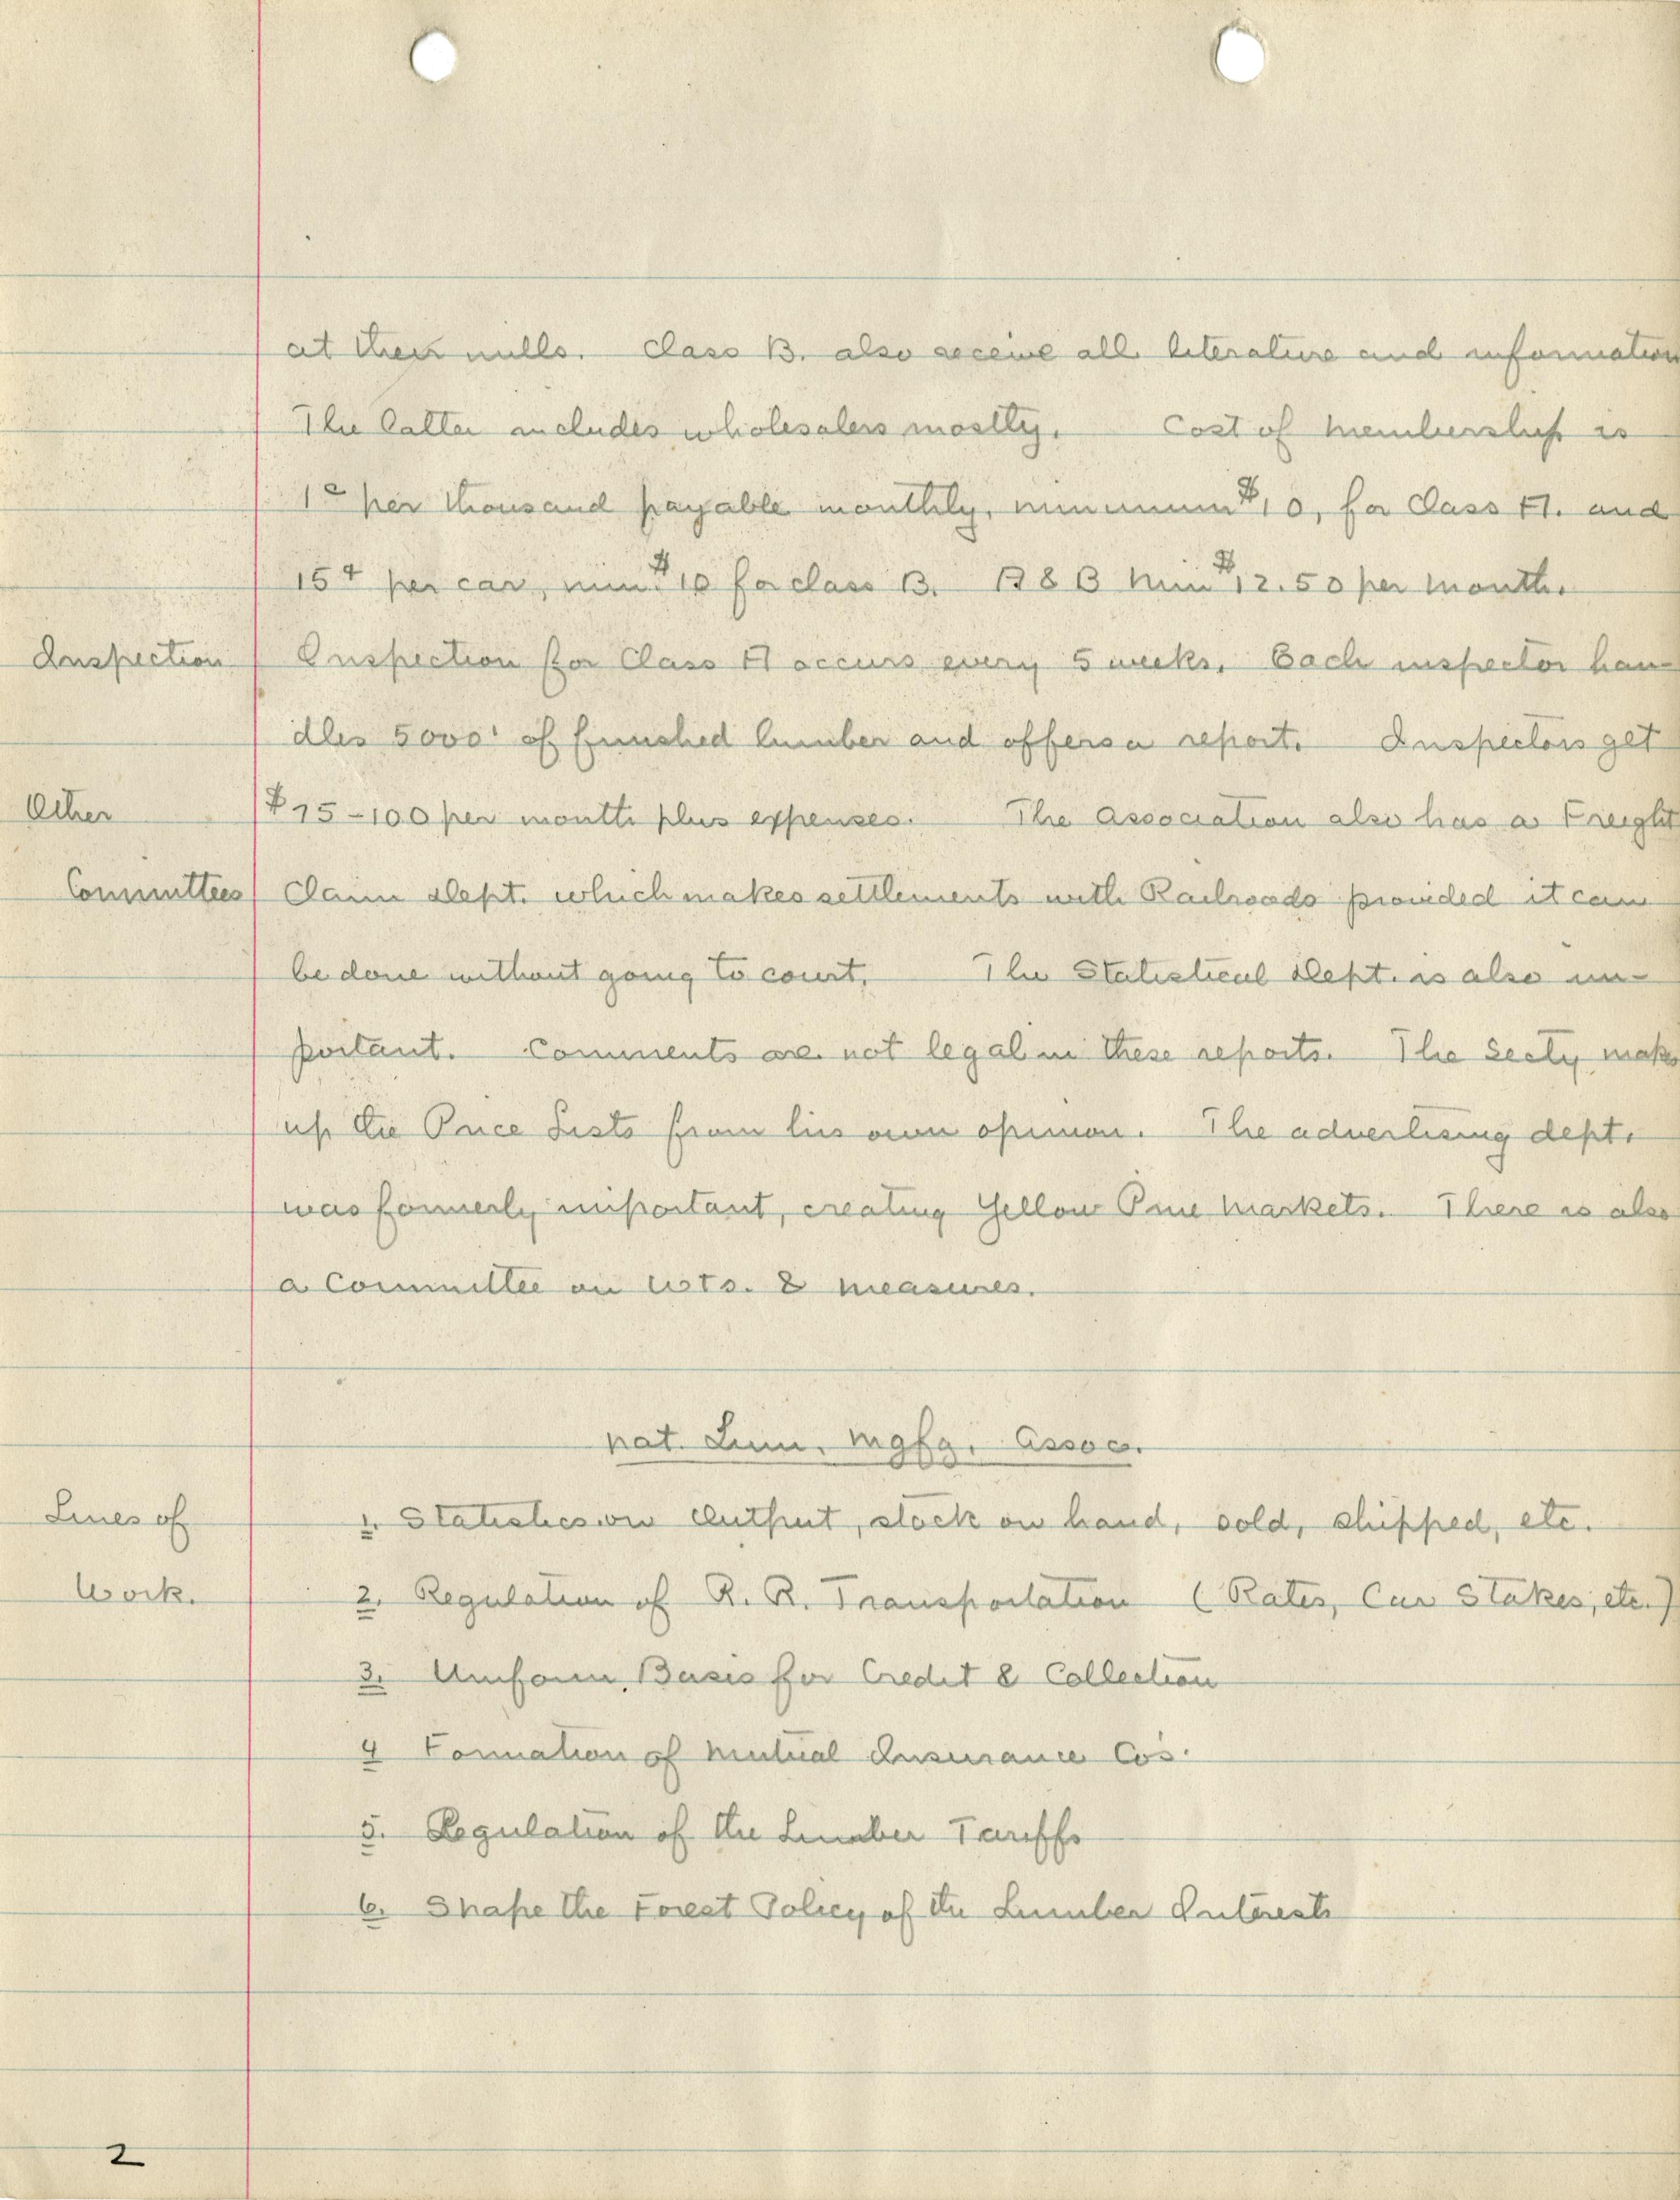 at their mills. Class B. also receive all literature and information
The latter includes wholesalers mostly. Cost of membership is
1¢ per thousand payable monthly, minimum $10, for Class A. and
15¢ per car, min. $10 for class B. A & B Min $12.50 per month.
Inspection Inspection for Class A occurs every 5 weeks. Each inspector han-
dles 5000' of finished lumber and offers a report. Inspectors get
Other $75-100 per month plus expenses. The Association also has a Freight
Committees Claim dept. which makes settlements with Railroads provided it can
be done without going to court. The Statistical dept. is also im-
portant. Comments are not legal in these reports. The Secty makes
up the Price Lists from his own opinion. The advertising dept.
was formerly important, creating Yellow Pine Markets. There is also
a Committee on Wts. & measures.
Nat. Lum. Mgfg. Assoc.
Lines of 1. Statistics on Output, stock on hand, sold, shipped, etc.
Work. 2. Regulation of R. R. Transportation (Rates, Car Stakes, etc.)
3. Uniform Basis for Credit & Collection
4 Formation of Mutual Insurance Cos.
5. Regulation of the Lumber Tariffs
6. Shape the Forest Policy of the Lumber Interests
2